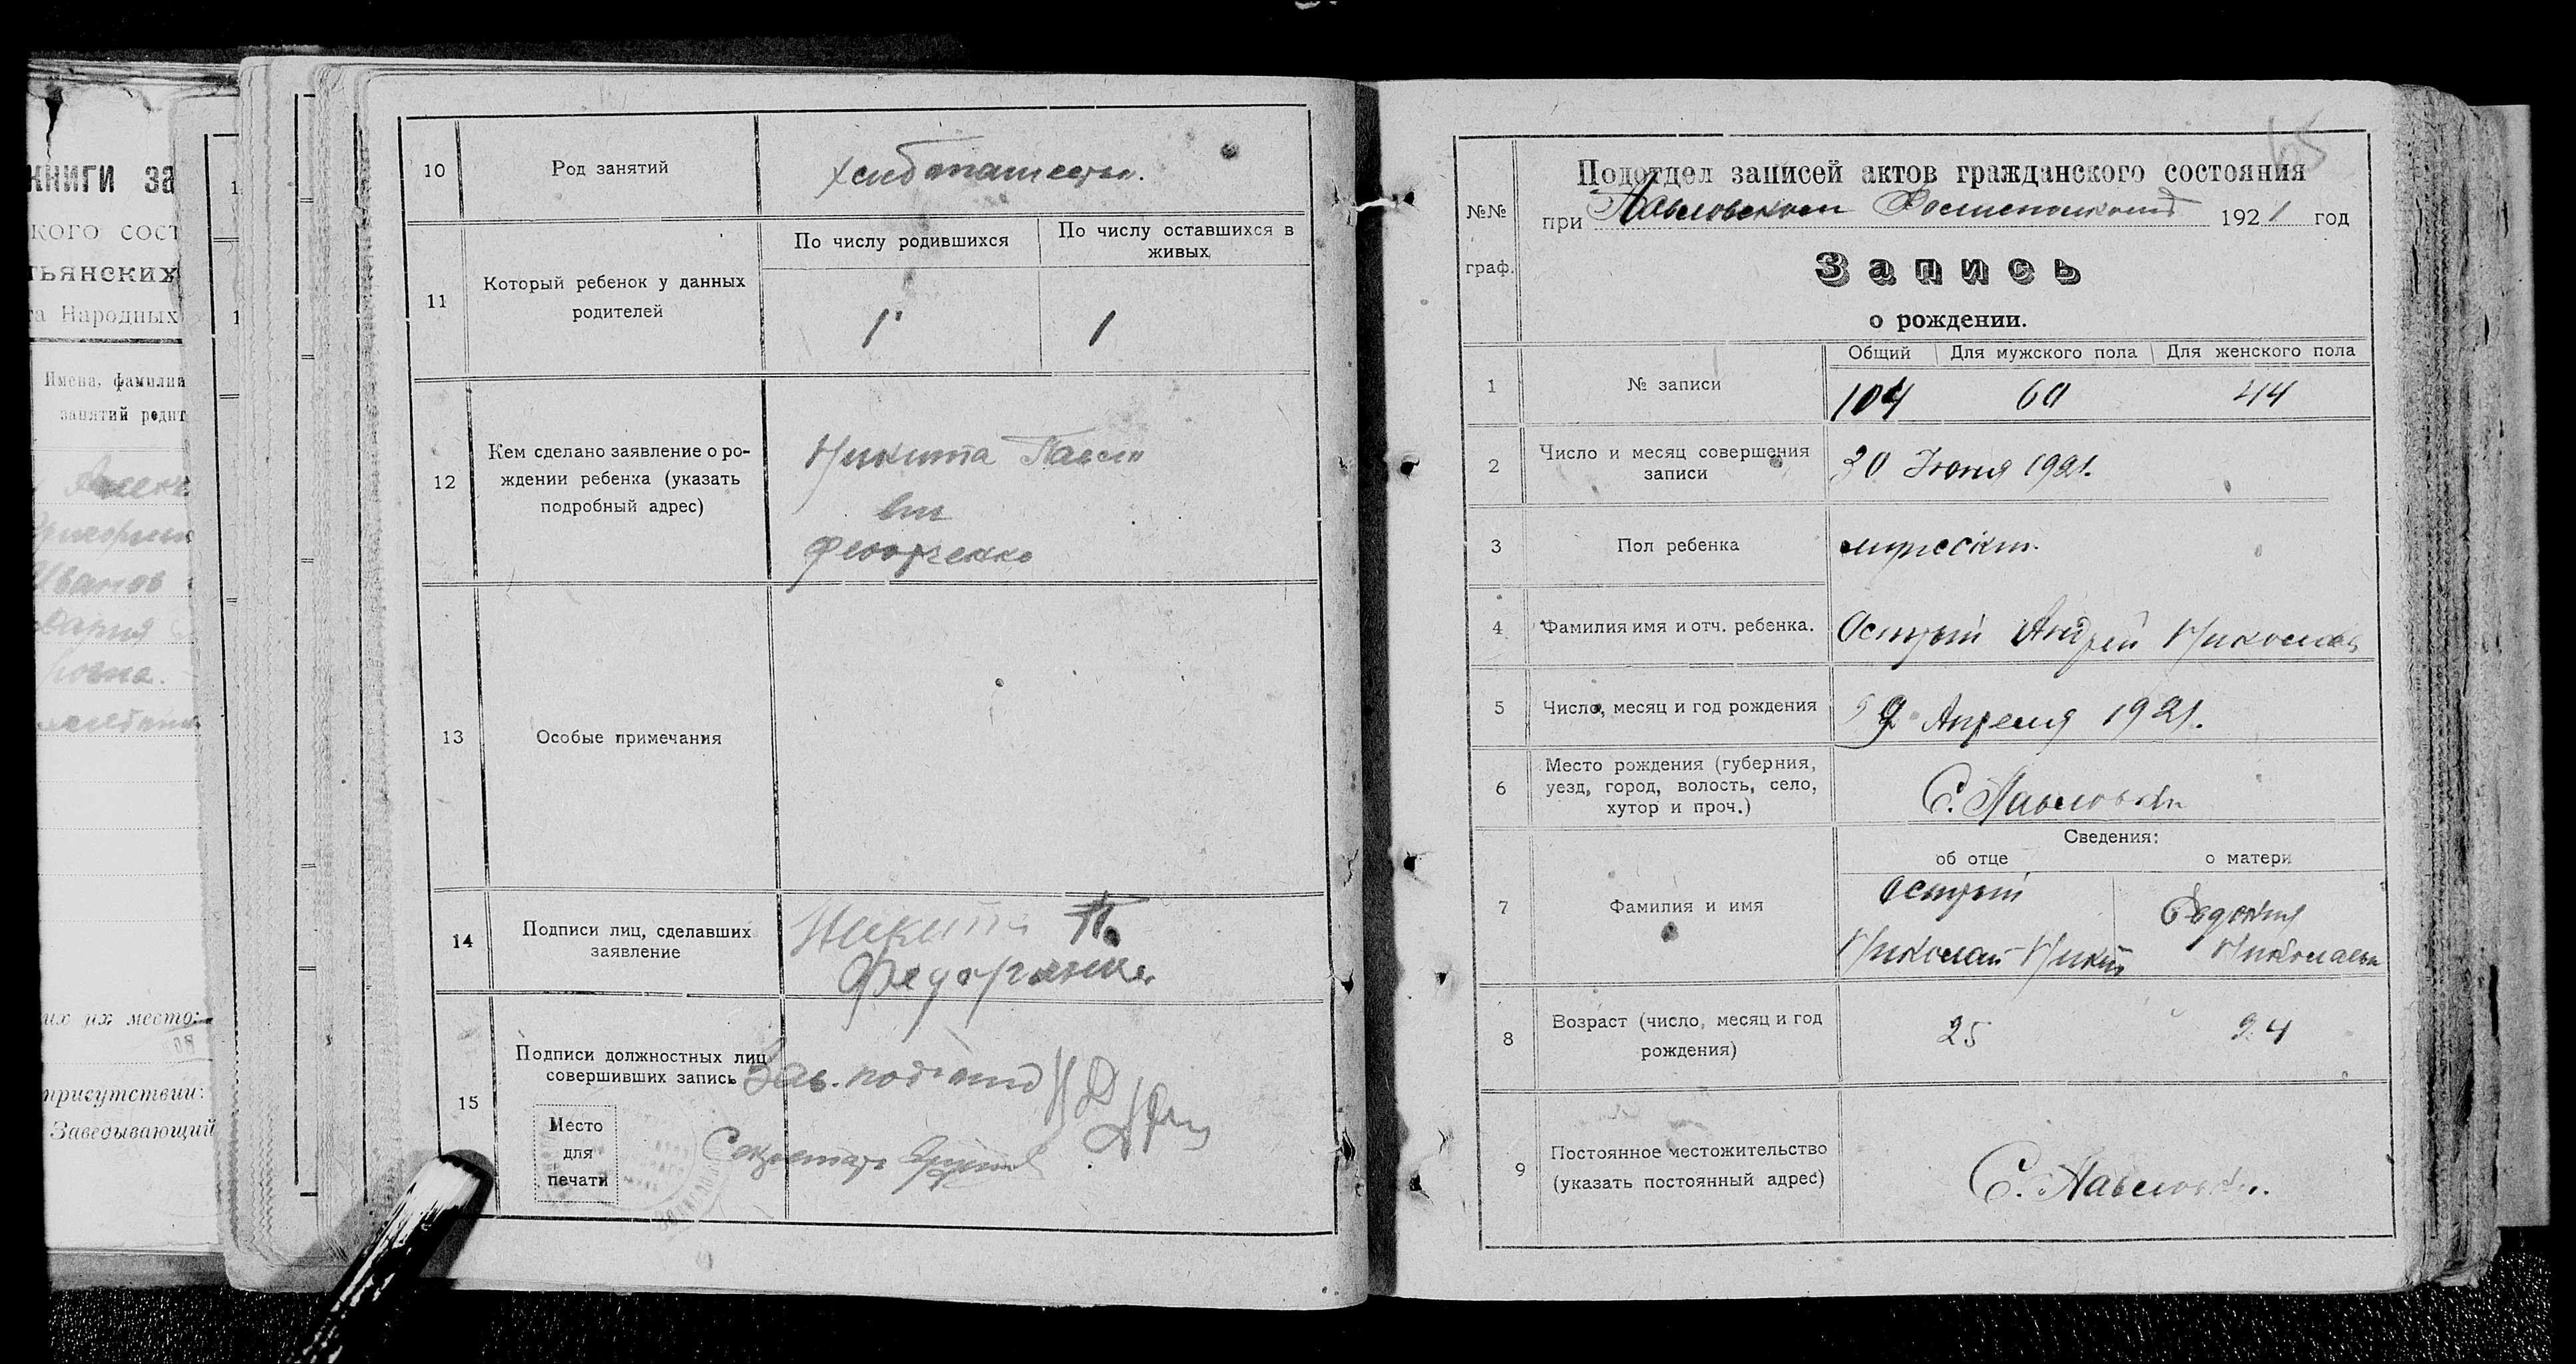 книги за
кого сост
тьянских
та Народных
Имена, фамилия
занятий родит
Иванов
Дария
их их место:
присутствии:
Заведывающий
10 Род занятий хлебопашест.
11 Который ребенок у данных
родителей
По числу родившихся По числу оставшихся в
живых
1 1
12 Кем сделано заявление о ро-
ждении ребенка (указать
подробный адрес)
Никита Павло
вич
Федорченко
13 Особые примечания
14 Подписи лиц, сделавших
заявление
Никита П.
Федорченко
15 Подписи должностных лиц
совершивших запись
Зав. подотд
Секретарь
Место
для
печати
65
Подотдел записей актов гражданского состояния
при Павловском 1921 год
№№
граф.
Запись
о рождении.
Общий Для мужского пола Для женского пола
1 № записи 104 60 44
2 Число и месяц совершения
записи
30 Июня 1921.
3 Пол ребенка мужеский.
4 Фамилия имя и отч. ребенка. Острый Андрей Николаев
5 Число, месяц и год рождения Апреля 1921.
6 Место рождения (губерния,
уезд, город, волость, село,
хутор и проч.)
С. Павловка
Сведения:
об отце о матери
7 Фамилия и имя
Острый Евдокия
Николай Никит Николаевн
8 Возраст (число, месяц и год
рождения)
25 24
9 Постоянное местожительство
(указать постоянный адрес)
С. Павловка.